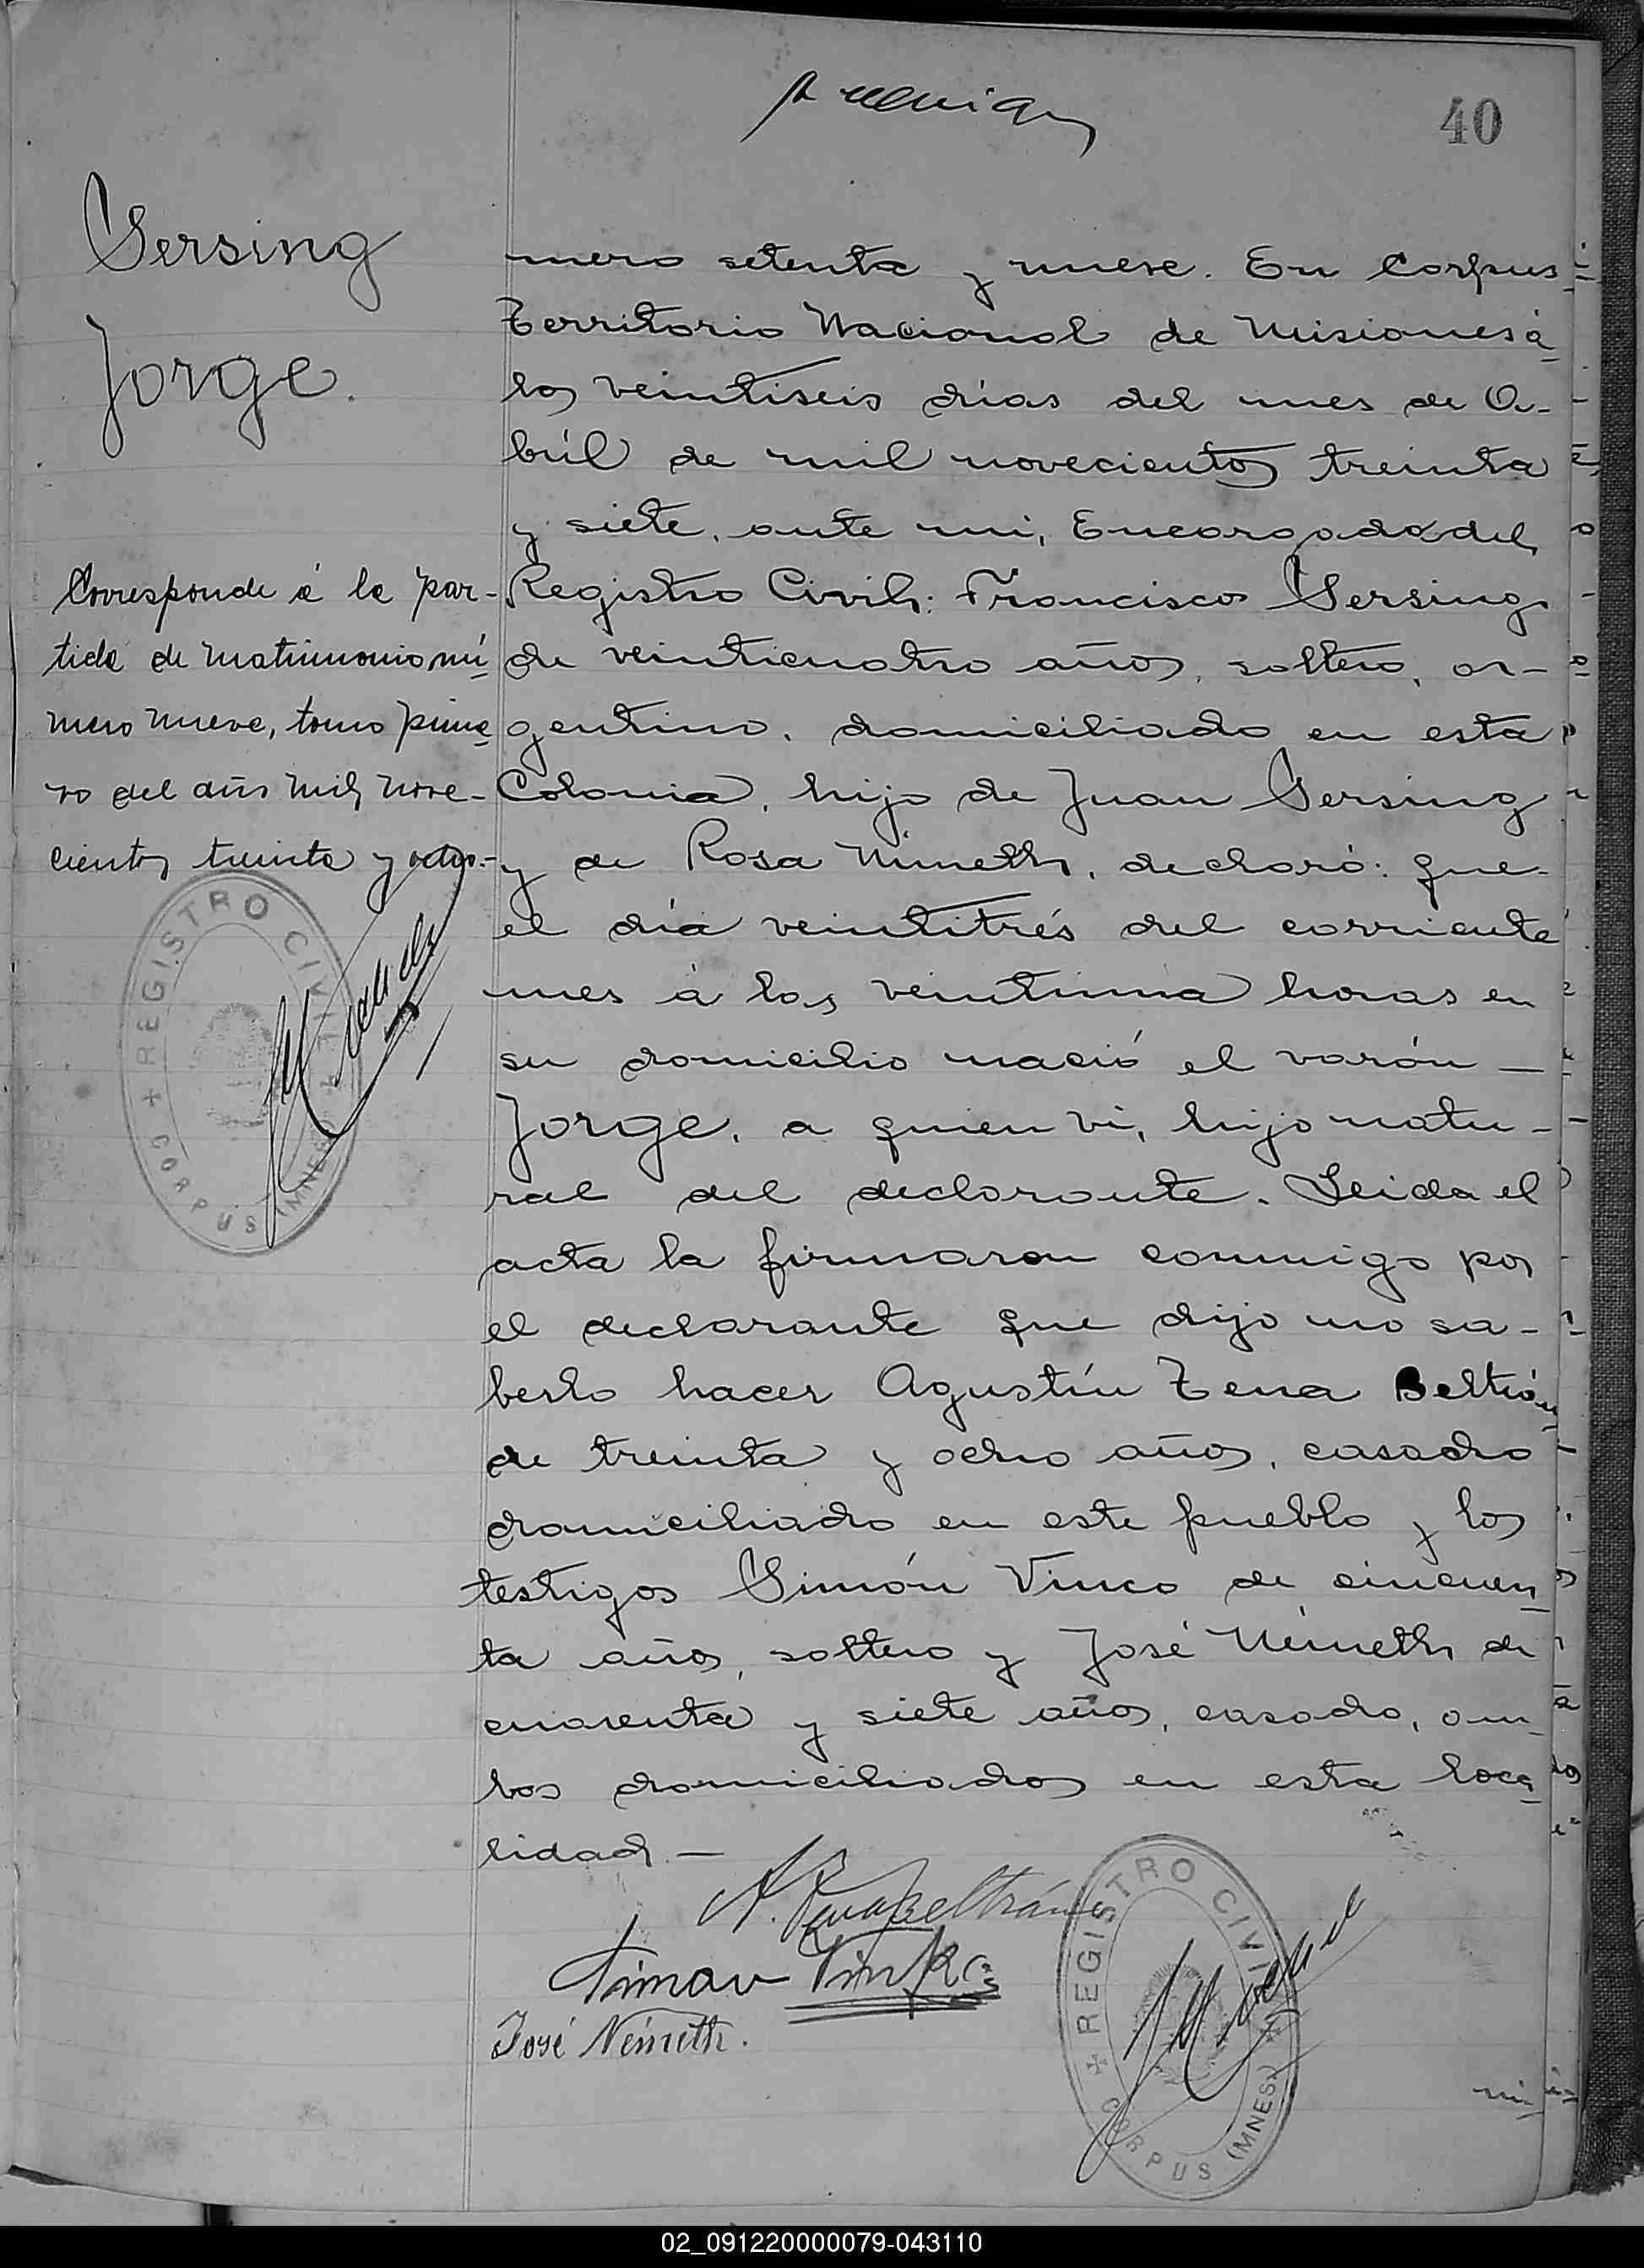 40
Gersing
Jorge.
Corresponde á la par-
tida de matrimonio nú
mero nueve, tomo prime
ro del año mil nove-
cientos treinta y ocho.-
REGISTRO CIVIL
CORPUS (MNES)
mero setenta y nueve. En Corpus
Territorio Nacional de Misiones á
los veintiseis días del mes de A-
bríl de mil novecientos treinta
y siete, ante mi, Encargado del
Registro Civil: Francisco Gersing
de veinticuatro años, soltero, ar-
gentino, domiciliado en esta
Colonia, hijo de Juan Gersing
y de Rosa Nimeth, declaró: que
el día veintitrés del corriente
mes á las veintiuna horas en
su domicilio nació el varón —
Jorge, a quien vi, hijo natu-
ral del declarante. Leida el
acta la firmaron conmigo por
el declarante que dijo no sa-
berlo hacer Agustín Zena Beltrán
de treinta y ocho años, casado
domiciliado en este pueblo y los
testigos Simón Vinco de cincuen
ta años, soltero y José Németh de
cuarenta y siete años, casado, am
bos domiciliados en esta loca
lidad.—
A. Zena Beltrán
Simon
José Németh.
REGISTRO CIVIL
CORPUS (MNES)
02_091220000079-043110